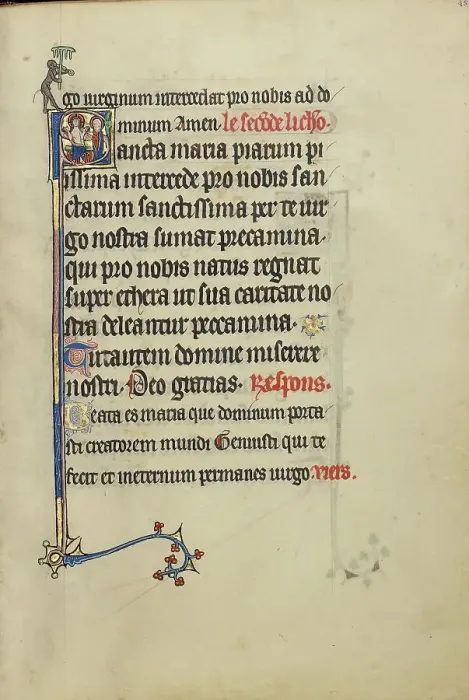 go uirginum intercedat pro nobis ad do
minum Amen. le secõde licho.
Sancta maria piarum pi
issima intercede pro nobis san
ctarum sanctissima per te uir
go nostra sumat precamina.
qui pro nobis natus regnat
super ethera ut sua caritate no
stra deleantur peccamina.
Tu autem domine miserere
nostri. Deo gratias. Respons.
Beata es maria que dominum porta
sti creatorem mundi Genuisti qui te
fecit et ineternum permanes uirgo. vers.